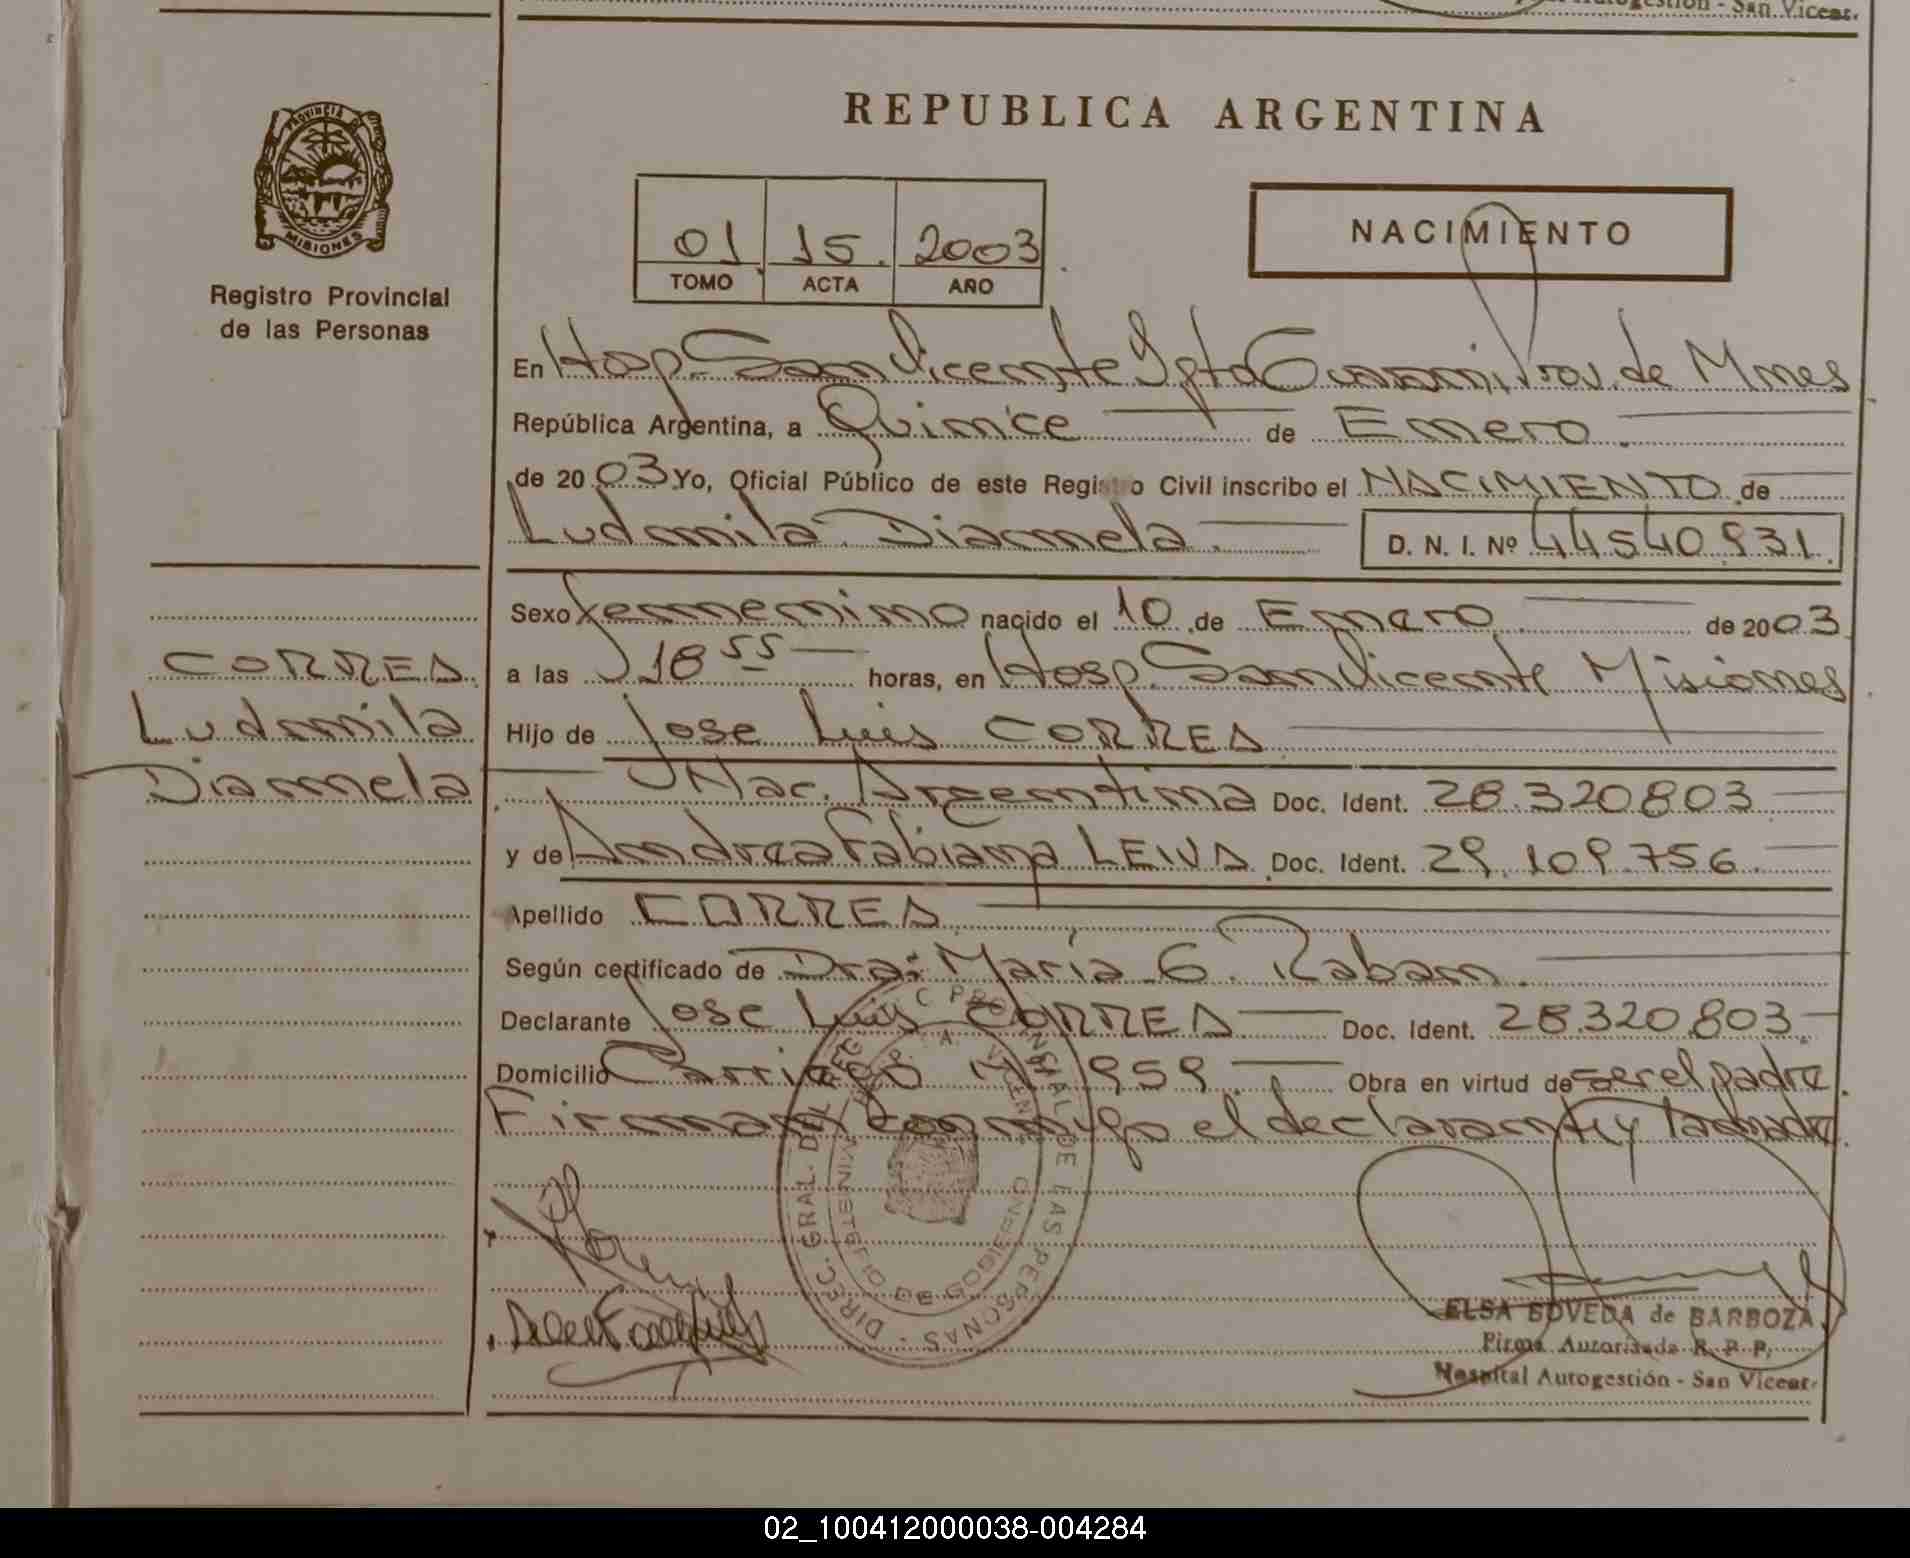 Autogestión - San Vicent.
REPUBLICA ARGENTINA
PROVINCIA DE
MISIONES
Registro Provincial
de las Personas
01 15 2003
TOMO ACTA AÑO
NACIMIENTO
En Hosp. San Vicente Dpto Guarani Prov. de Mnes
República Argentina, a Quince de Enero
de 2003 Yo, Oficial Público de este Registro Civil inscribo el NACIMIENTO de
Ludmila Diamela D. N. I. Nº 44540931
Sexo femenino nacido el 10 de Enero de 2003
CORREA
Ludmila
Diamela
a las 18 55 horas, en Hosp. San Vicente Misiones
Hijo de Jose Luis CORREA
Nac. Argentina Doc. Ident. 28.320803
y de Andrea Fabiana LEIVA Doc. Ident. 29.109.756
Apellido CORREA
Según certificado de Dra. María G. Raban
Declarante Jose Luis CORREA Doc. Ident. 28.320.803
Domicilio Carriego Nº 1959 Obra en virtud de ser el padre
Firman conmigo el declarante y la madre
DIREC. GRAL. DEL REG. C PROVINCIAL DE LAS PERSONAS
MINISTERIO DE GOBIERNO
ELSA BOVEDA de BARBOZA
Firma Autorizada R. P. P.
Hospital Autogestión - San Vicent.
02_100412000038-004284